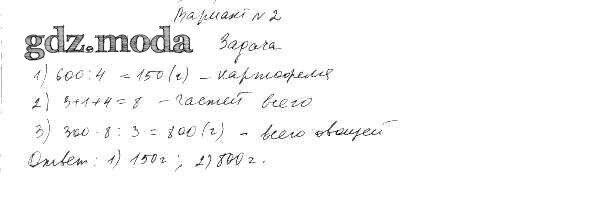 Вариант №2
gdz.moda
Задача
1) 600:4 = 150 (г) – картофеля
2) 3+1+4=8 – частей всего
3) 300·8:3=800 (г) – всего овощей
Ответ: 1) 150г; 2) 800г.